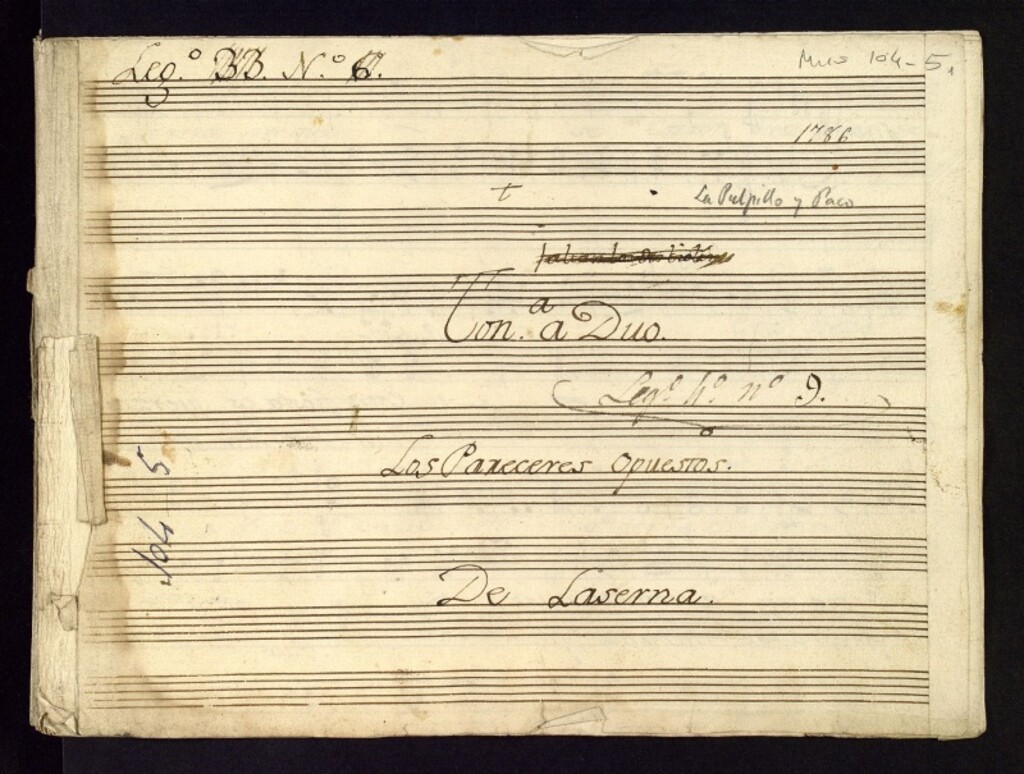 Leg.º BB. N.º 6.
Mus 104-5.
1786
t
La Pulpillo y Paco
Ton.ª a Duo.
Leg.º 4.º nº 9.
Los Pareceres opuestos.
104 5
De Laserna.